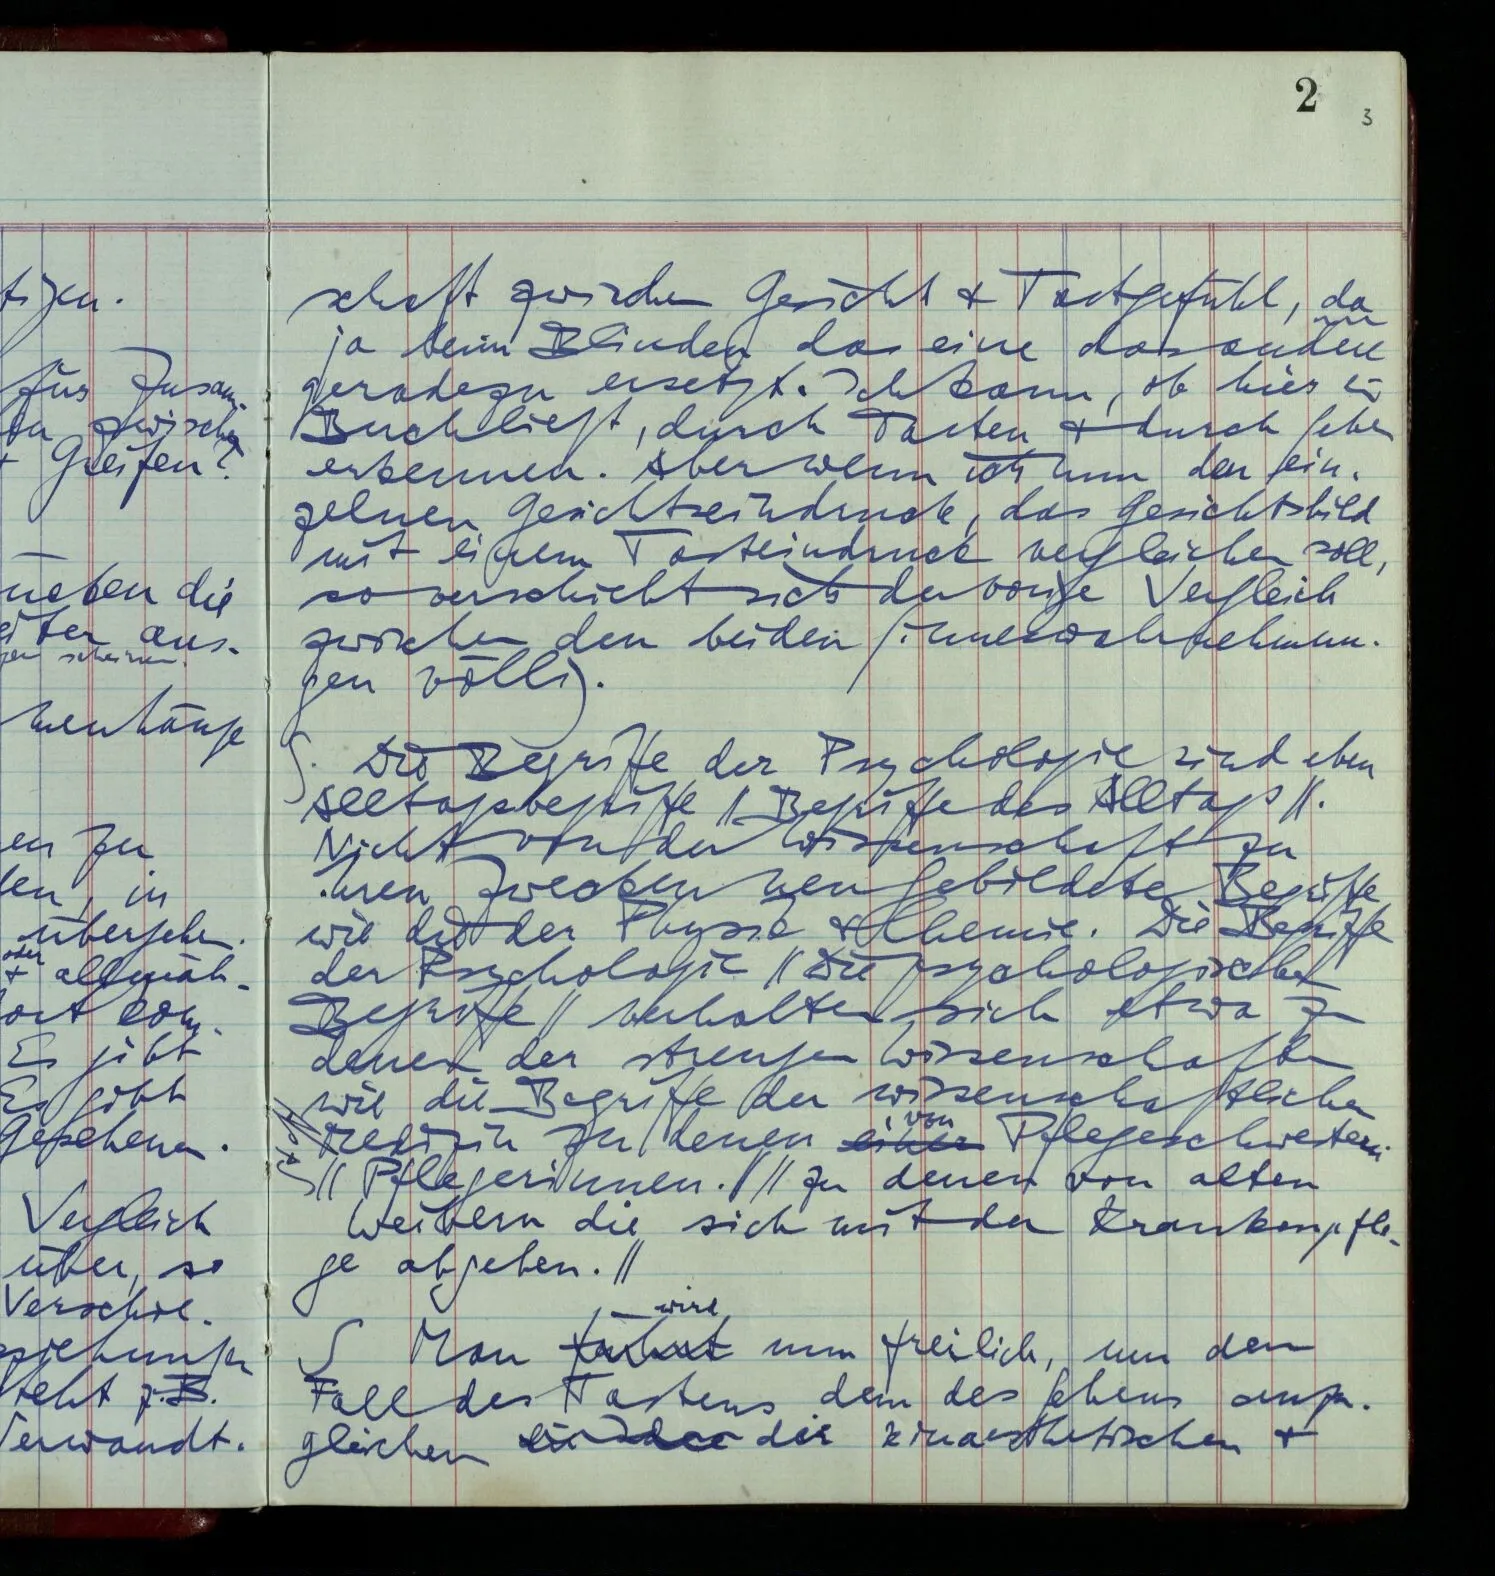 2
3
tizen.
für Zusam-
zwischen
+ Greifen?
neben die
aus-
scheinen.
menhänge
en zu
en, in
übersehen.
oder
+ allmäh-
Es gibt
Es gibt
Gesehenen.
Vergleich
über, so
Verschie-
ziehungen
steht z.B.
Verwandt-
schaft zwischen Gesicht + Tastgefühl, da
ja beim Blinden das eine das andere
geradezu ersetzt. Ich kann, ob hier ein
Buch liegt, durch Tasten + durch Sehen
erkennen. Aber wenn ich nun den ein-
zelnen Gesichtseindruck, das Gesichtsbild
mit einem Tasteindruck vergleichen soll,
so verschiebt sich der vorige Vergleich
zwischen den beiden Sinneswahrnehmun-
gen völlig.
S. Die Begriffe der Psychologie sind eben
Alltagsbegriffe // Begriffe des Alltags //.
Nicht von der Wissenschaft zu
ihren Zwecken neu gebildete Begriffe
wie die der Physik + Chemie. Die Begriffe
der Psychologie // Die psychologischen
Begriffe // verhalten sich etwa zu
denen der strengen Wissenschaften
wie die Begriffe der wissenschaftlichen
von
Medizin zu denen einer Pflegeschwestern
// Pflegerinnen. // // zu denen von alten
Weibern die sich mit der Krankenpfle-
ge abgeben. //
wird
S Man führt nun freilich, um den
Fall des Tastens dem des Sehens anzu-
gleichen die kinaesthetischen +